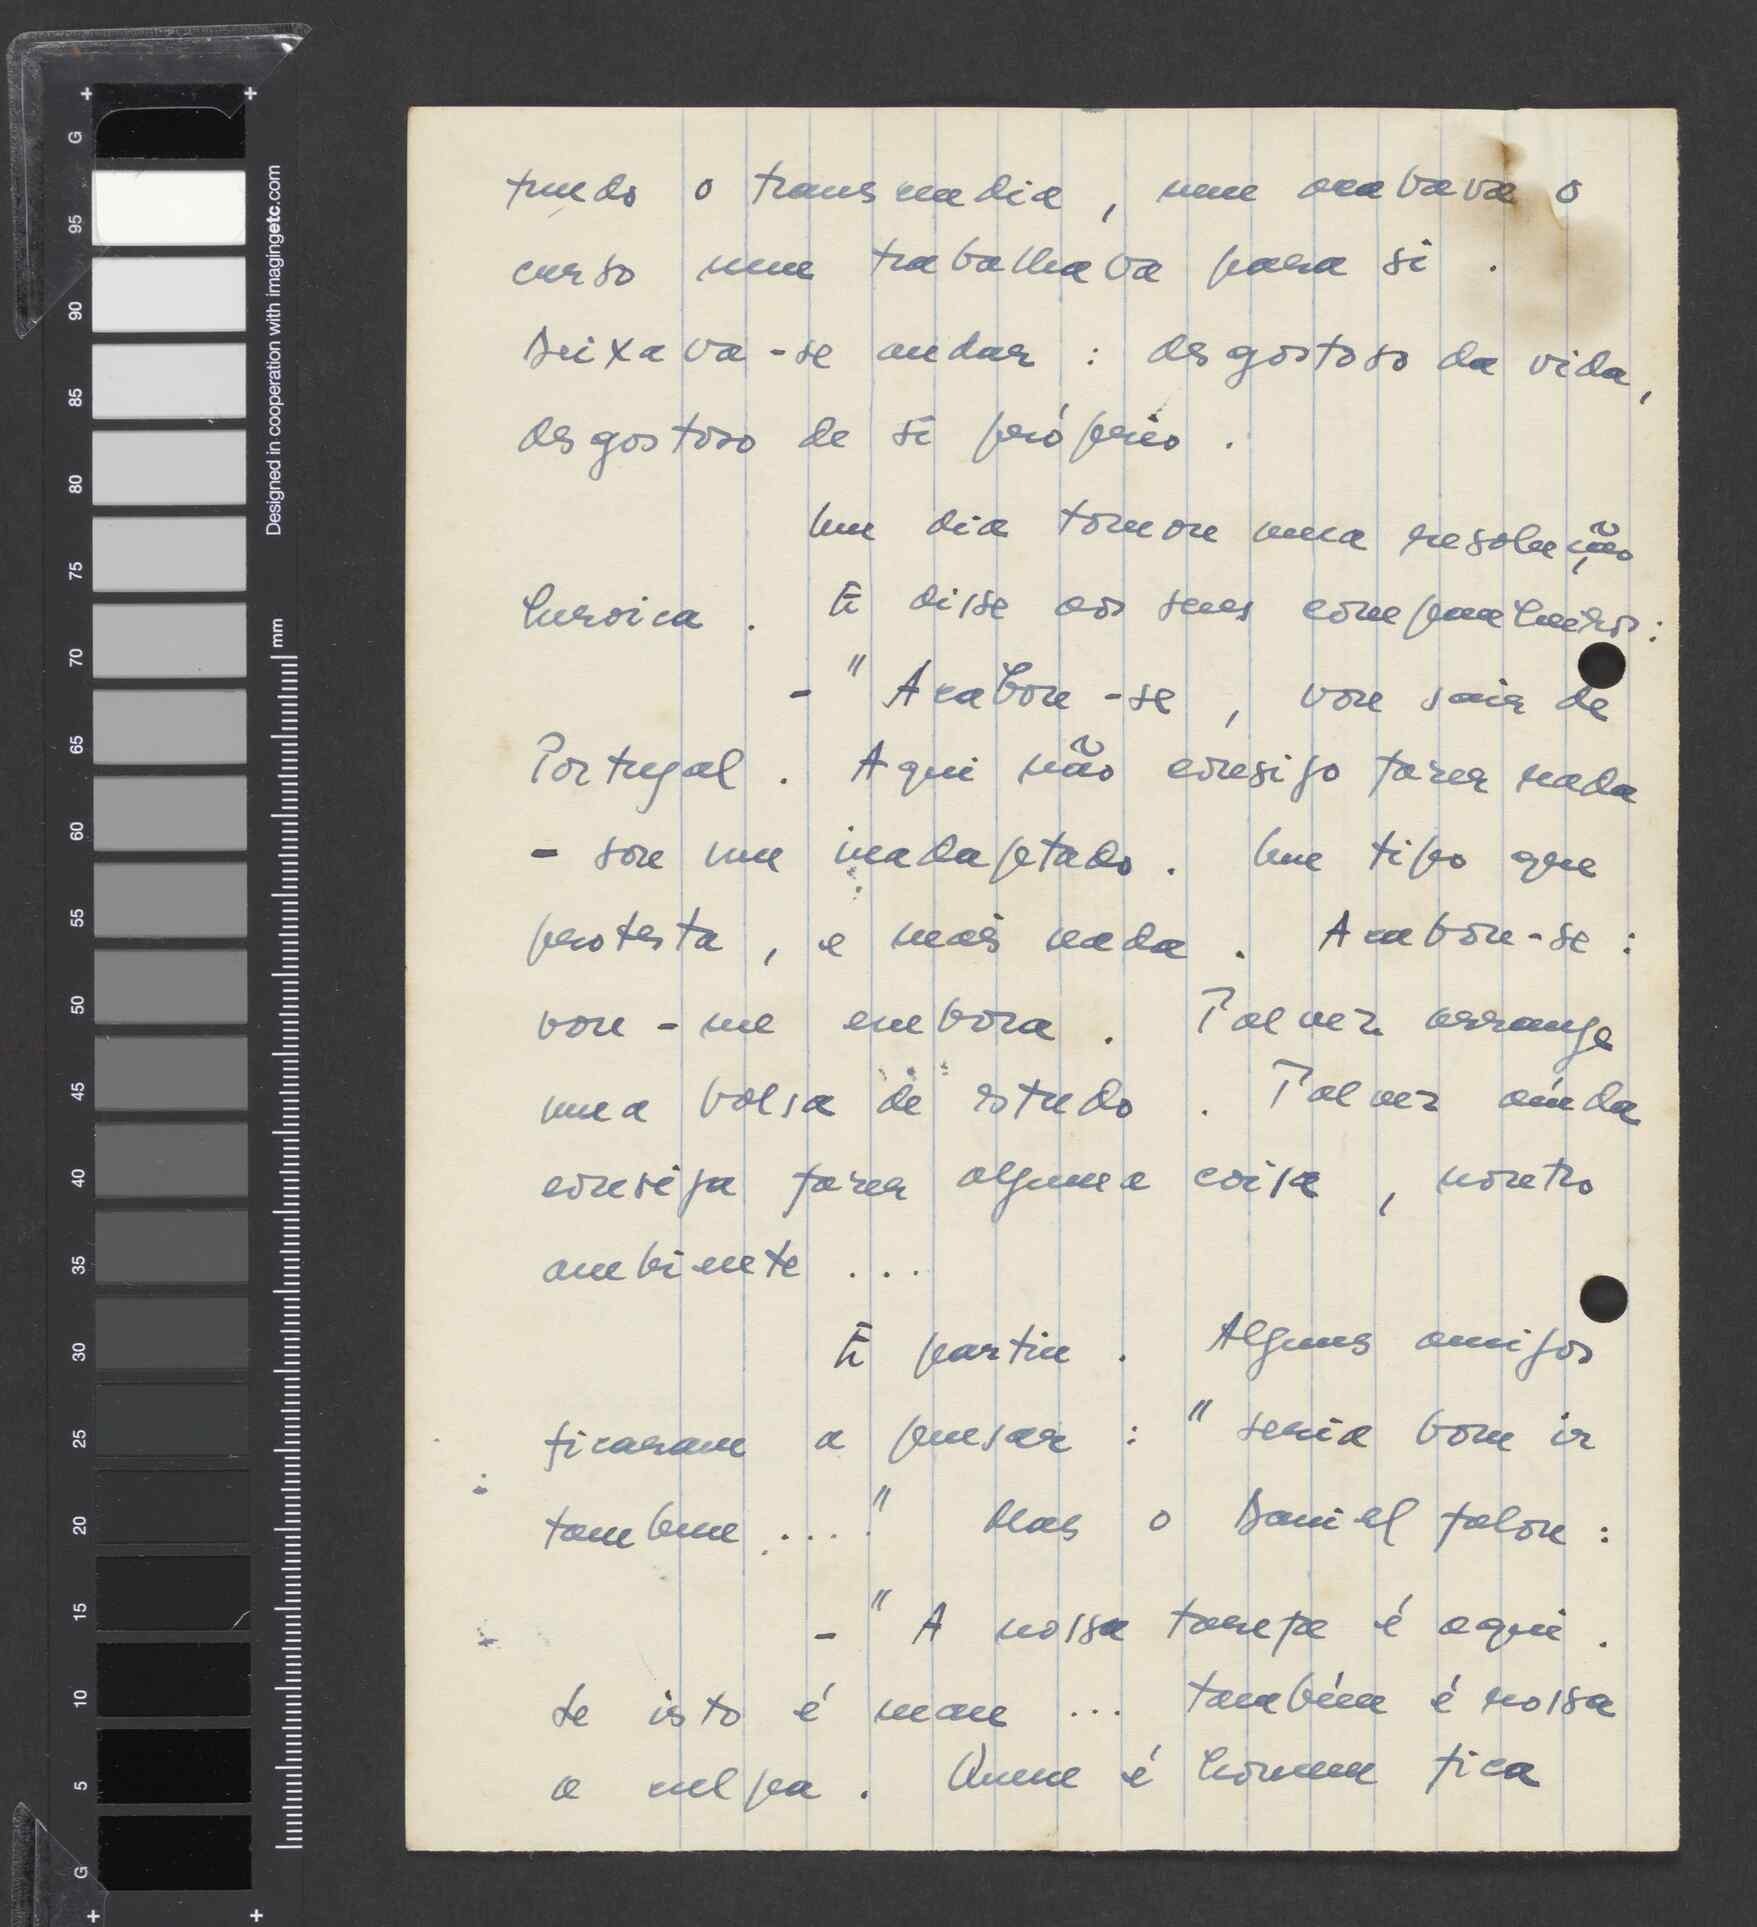 tudo o transcendia, nem acabava o
curso nem trabalhava para si.
Deixava-se andar: desgostoso da vida,
desgostoso de si próprio.
Um dia tomou uma resolução
heroica. E disse aos seus companheiros:
- "Acabou-se, vou sair de
Portugal. Aqui não consigo fazer nada
- sou um inadaptado. Um tipo que
protesta, e mais nada. Acabou-se:
vou-me embora. Talvez arranje
uma bolsa de estudo. Talvez ainda
consiga fazer alguma coisa, noutro
ambiente...
E partiu. Alguns amigos
ficaram a pensar: "seria bom ir
tambem...." Mas o Daniel falou:
- "A nossa tarefa é aqui.
Se isto é mau... também é nossa
a culpa. Quem é homem fica
Designed in cooperation with imagingetc.com
mm
G 95 90 85 80 75 70 65 60 55 50 45 40 35 30 25 20 15 10 5 G